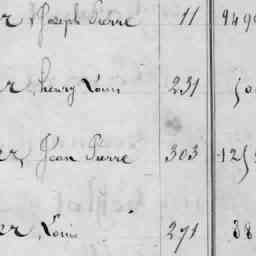 er, Joseph Pierre 11 949
er, henry Louis 231 50
er, Jean Pierre 303 125
er, Louis 271 38